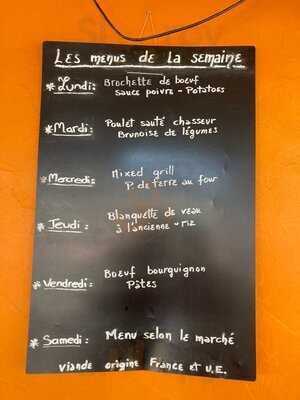 Les menus de la semaine
* Lundi: Brochette de bœuf
sauce poivre - Potatoes
* Mardi: Poulet sauté chasseur
Brunoise de légumes
* Mercredi: Mixed grill
P. de terre au four
* Jeudi: Blanquette de veau
à l'ancienne - riz
* Vendredi: Bœuf bourguignon
Pâtes
* Samedi: Menu selon le marché
viande origine France et U.E.